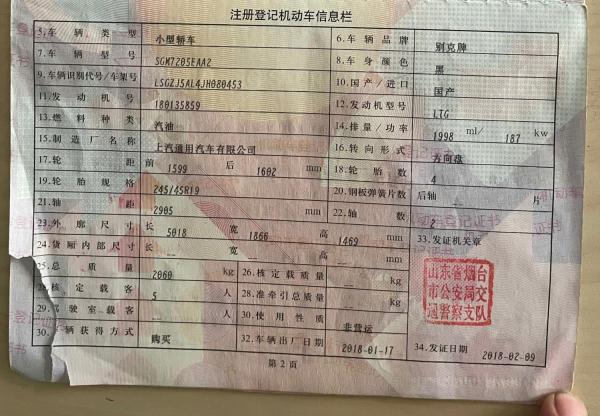 注册登记机动车信息栏
5.车辆类型 小型轿车 6.车辆品牌 别克牌
7.车辆型号 SGM7205EAA2 8.车身颜色 黑
9.车辆识别代号/车架号 LSGZJ5AL4JH080453 10.国产/进口 国产
11.发动机号 180135859 12.发动机型号 LTG
13.燃料种类 汽油 14.排量/功率 1998 ml/ 187 kw
15.制造厂名称 上汽通用汽车有限公司 16.转向形式 方向盘
17.轮距 前 1599 后 1602 mm 18.轮胎数 4
19.轮胎规格 245/45R19 20.钢板弹簧片数 后轴 -- 片
21.轴距 2905 mm 22.轴数 2
23.外廓尺寸 长 5018 宽 1866 高 1469 mm 33.发证机关章
24.货厢内部尺寸 长 -- 宽 -- 高 -- mm
25.总质量 2060 kg 26.核定载质量 -- kg
核定载客 5 人 28.准牵引总质量 -- kg
29.驾驶室载客 -- 人 30.使用性质 非营运
车辆获得方式 购买 32.车辆出厂日期 2018-01-17 34.发证日期 2018-02-09
山东省烟台
市公安局交
通警察支队
第2页